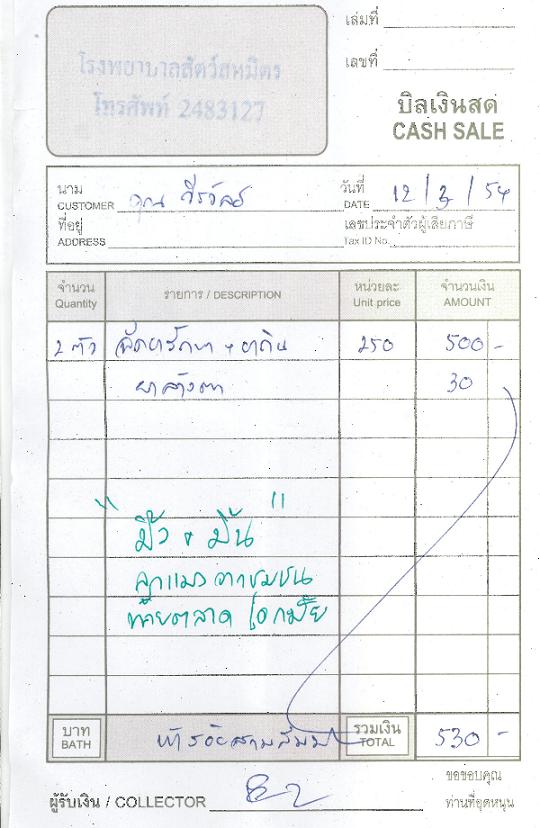 เล่มที่
เลขที่
โรงพยาบาลสัตว์สหมิตร
โทรศัพท์ 2483127
บิลเงินสด
CASH SALE
นาม
CUSTOMER คุณ
วันที่
DATE 12/3/54
ที่อยู่
ADDRESS
เลขประจำตัวผู้เสียภาษี
Tax ID No.
จำนวน
Quantity
รายการ / DESCRIPTION
หน่วยละ
Unit price
จำนวนเงิน
AMOUNT
2 ตัว ฉีดยารักษา + ยากิน 250 500 -
ยาล้างตา 30
"มิ้ว + มิ้น"
ลูกแมวจากชุมชน
ท้ายตลาดเอกมัย
บาท
BATH
ห้าร้อยสามสิบบาท
รวมเงิน
TOTAL
530 -
ผู้รับเงิน / COLLECTOR
ขอขอบคุณ
ท่านที่อุดหนุน